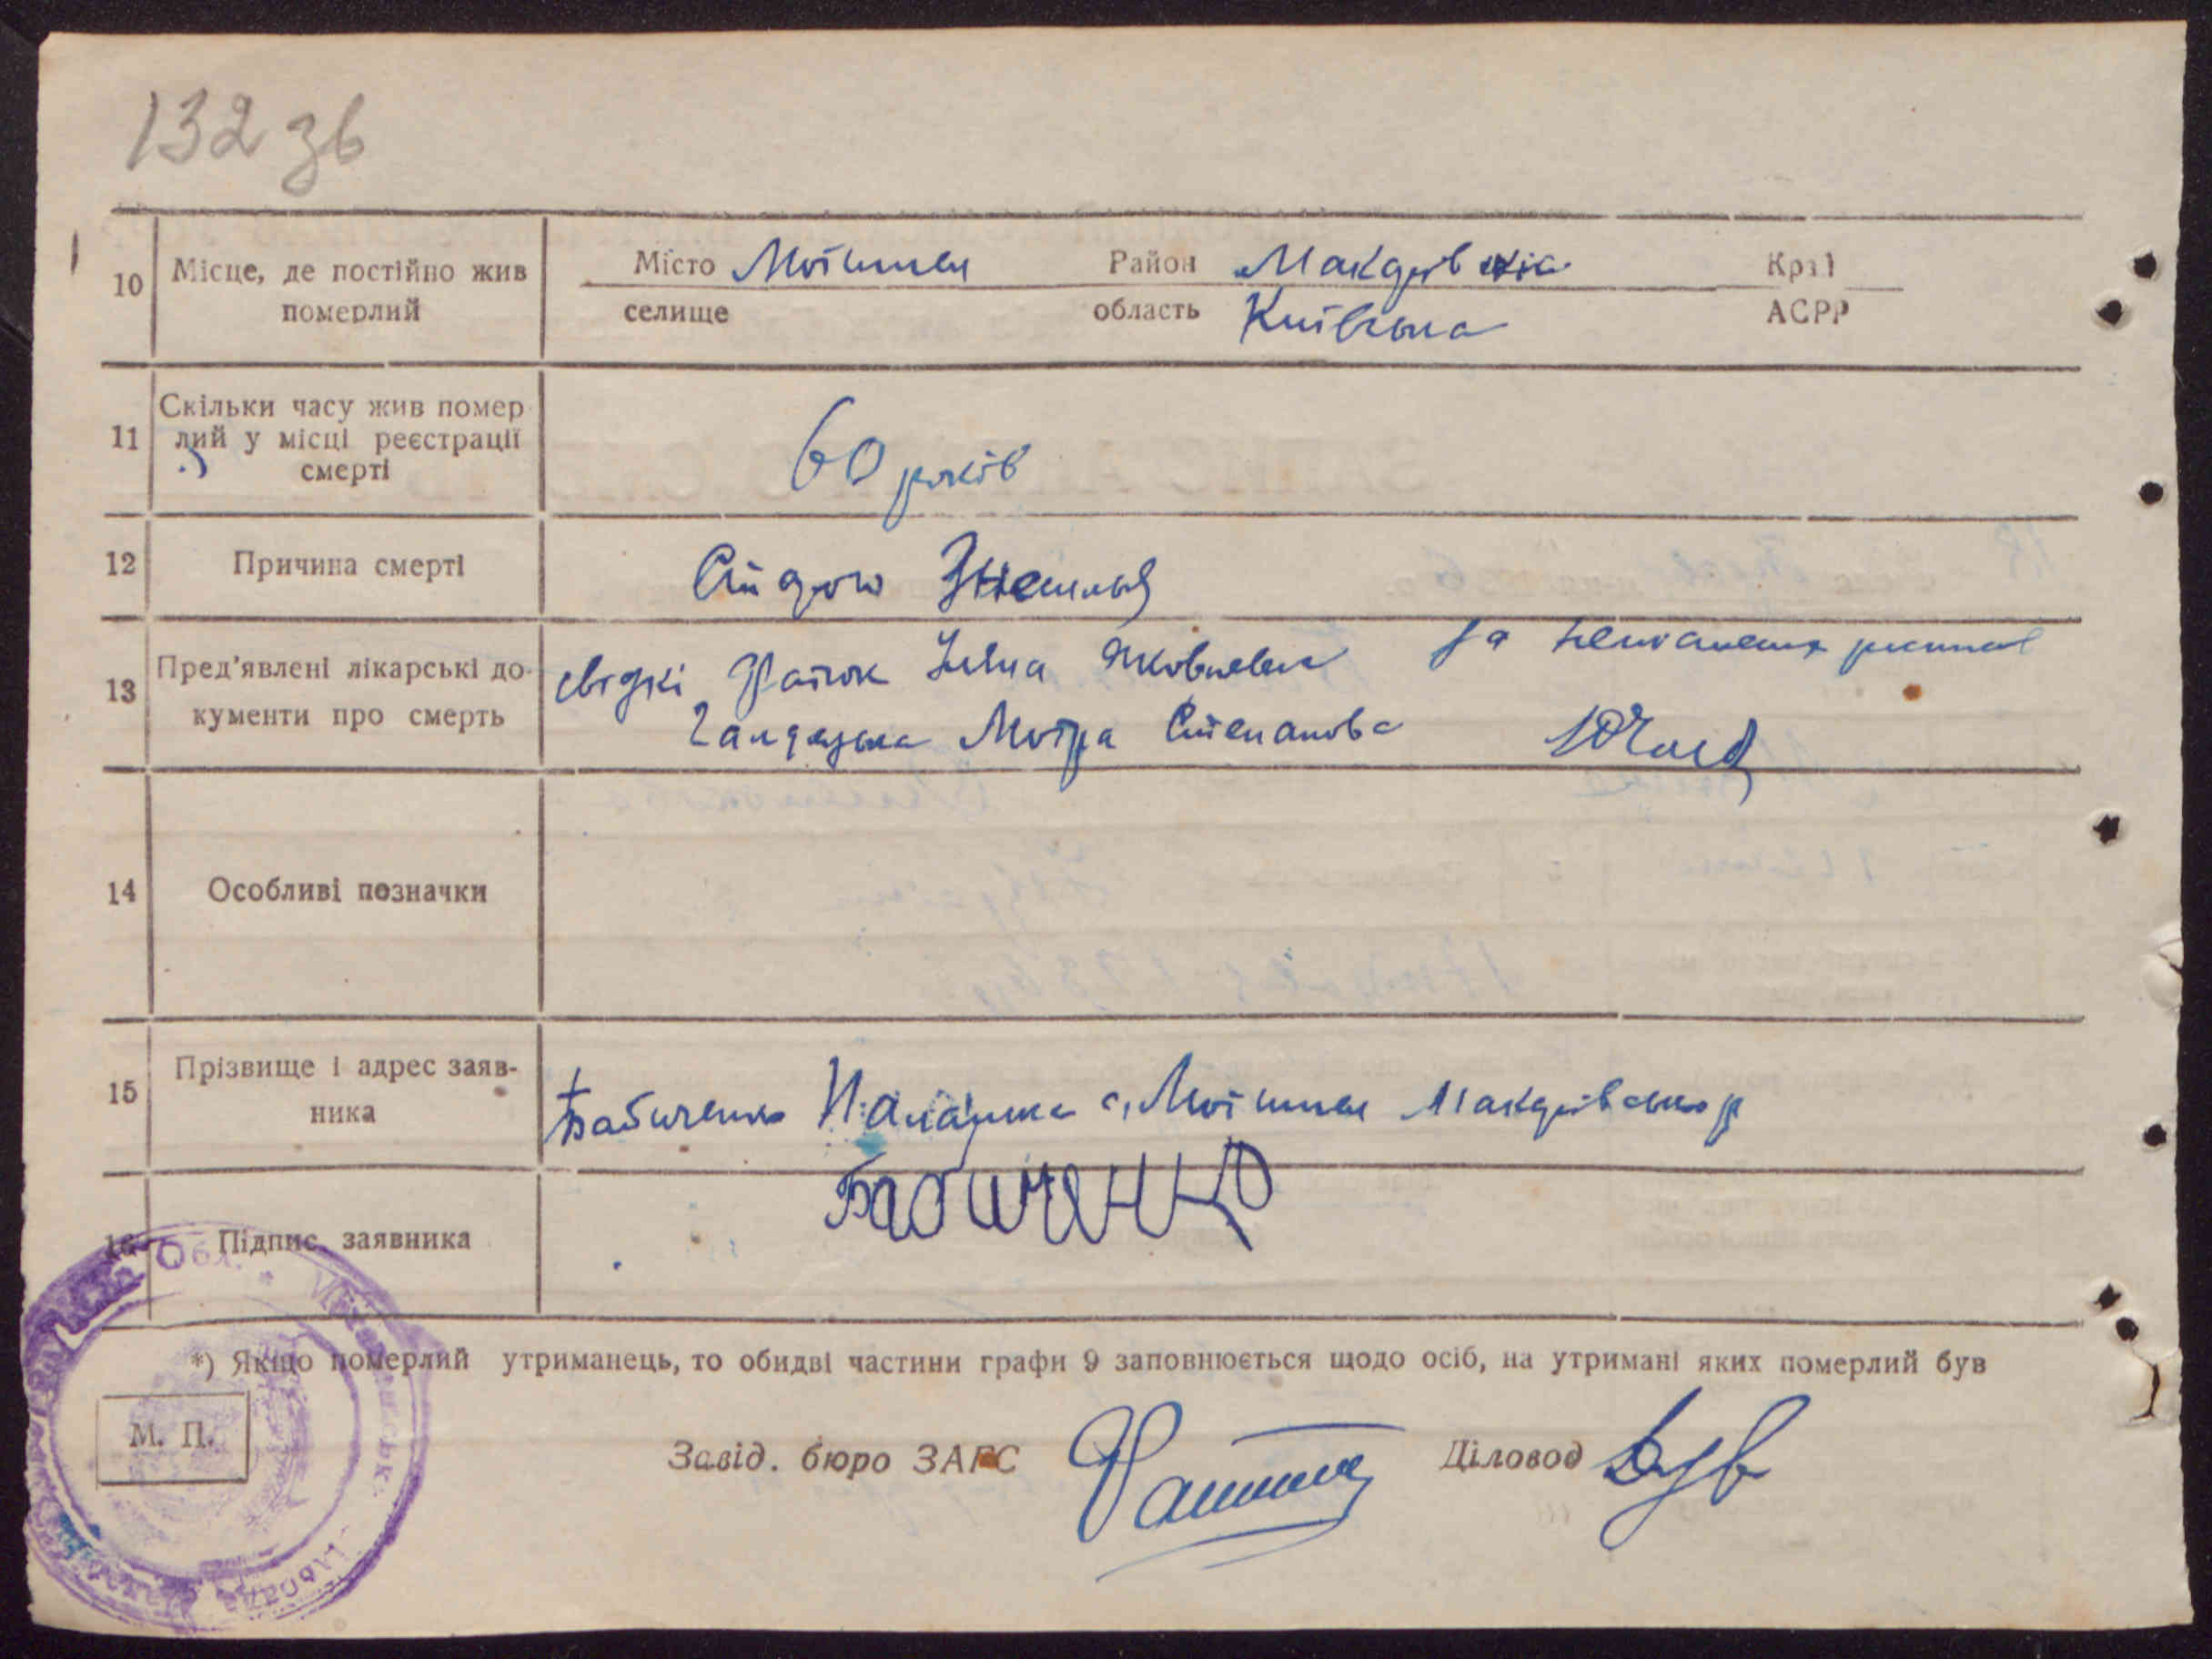 132 зв
10 Місце, де постійно жив померлий
Місто Мотижин Район Макарівськ Край
селище область Київська АСРР
11 Скільки часу жив помер
лий у місці реєстрації
смерті
60 років
12 Причина смерті
13 Пред'явлені лікарські до-
кументи про смерть
свідкі Яковлевич за
Мотря Степанова
14 Особливі позначки
15 Прізвище і адрес заяв-
ника
Бабиченко Палажка с. Мотижин Макарівськ р
16 Підпис заявника
Бабиченко
*) Якщо померлий утриманець, то обидві частини графи 9 заповнюється щодо осіб, на утримані яких померлий був
М. П.
Завід. бюро ЗАГС Діловод